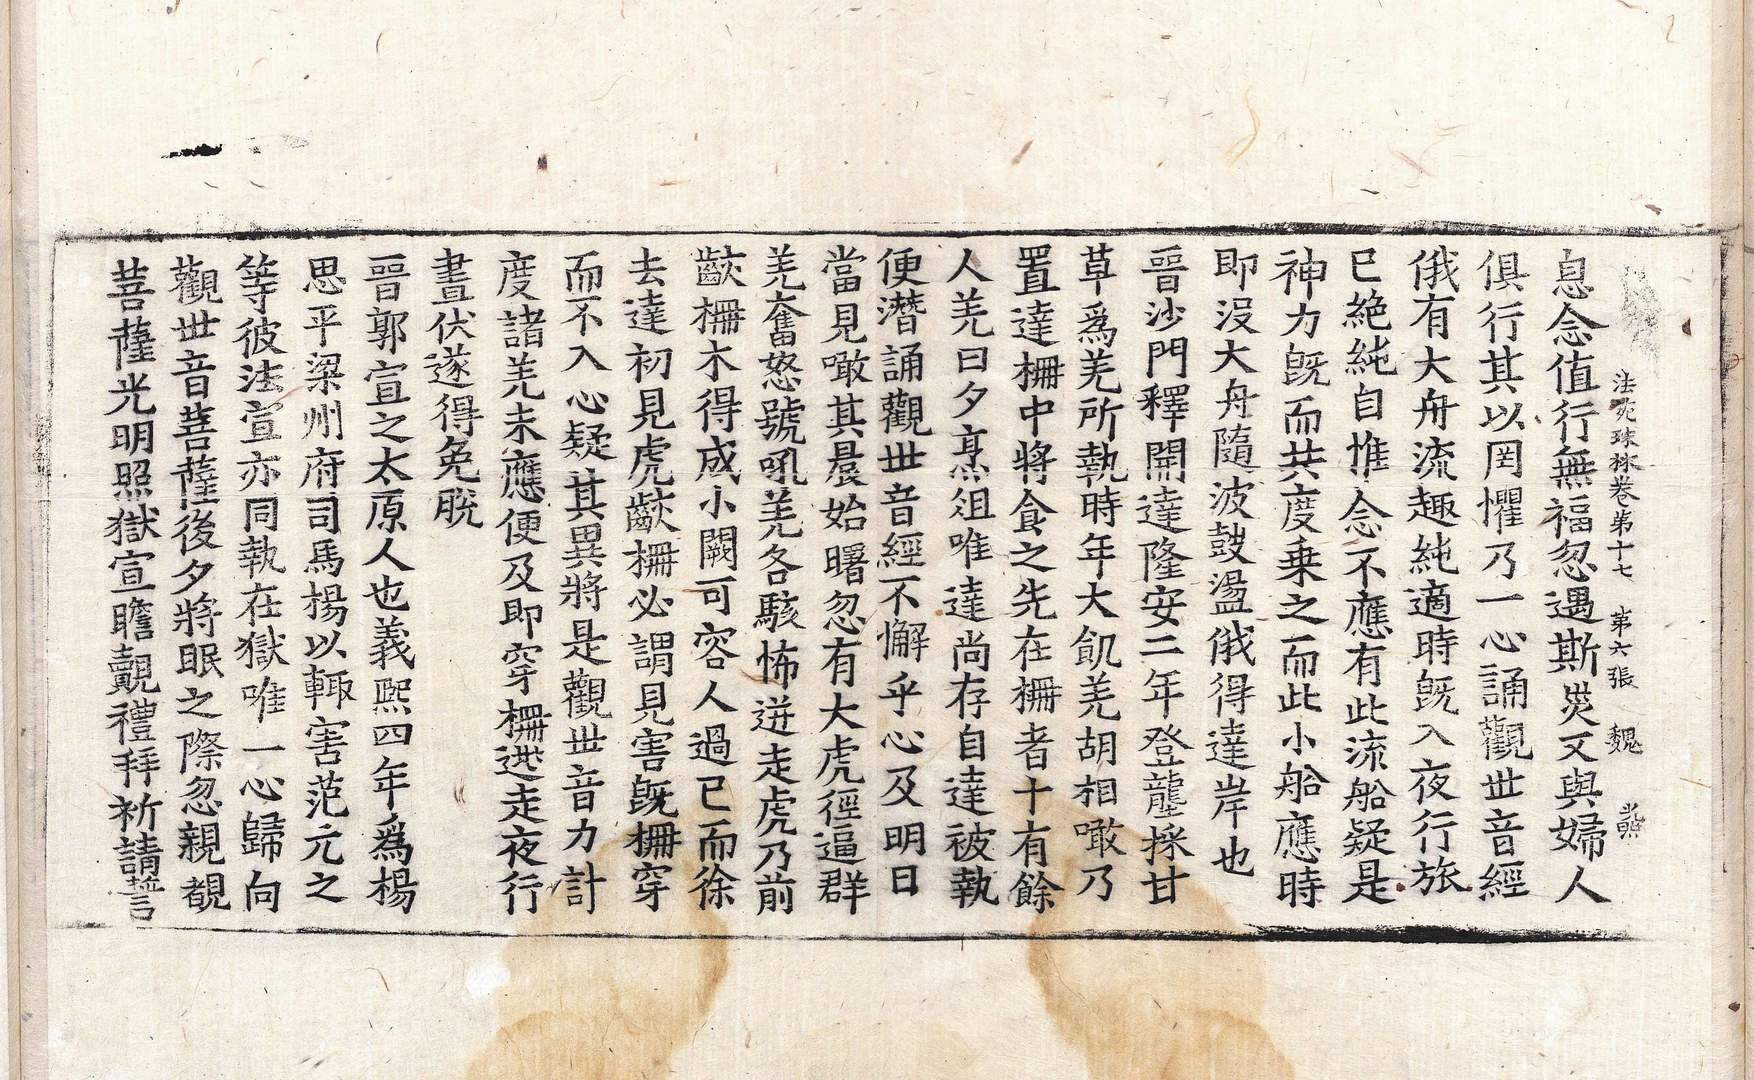 法苑珠林卷第十七 第六張 魏
息念值行無福忽遇斯災又與婦人
俱行其以罔懼乃一心誦觀世音經
俄有大舟流趣純適時既入夜行旅
已絕純自惟念不應有此流船疑是
神力既而共度乗之而此小船應時
即沒大舟隨波鼓盪俄得達岸也
晉沙門釋開達隆安二年登壟採甘
草爲羌所執時年大飢羌胡相噉乃
置達柵中將食之先在柵者十有餘
人羌日夕烹俎唯達尚存自達被執
便潛誦觀世音經不懈乎心及明日
當見噉其晨始曙忽有大虎徑逼群
羌奮怒號吼羌各駭怖迸走虎乃前
齧柵木得成小闕可容人過已而徐
去達初見虎齧柵必謂見害既柵穿
而不入心疑其異將是觀世音力計
度諸羌未應便及即穿柵逃走夜行
晝伏遂得免脫
晉郭宣之太原人也義熙四年爲楊
思平梁州府司馬楊以輒害范元之
等彼法宣亦同執在獄唯一心歸向
觀世音菩薩後夕將眠之際忽親覩
菩薩光明照獄宣瞻覿禮拜祈請誓